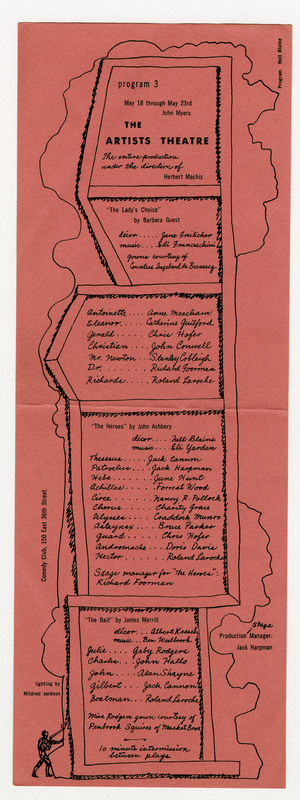 Program Nell Blaine
program 3
May 18 through May 23rd
John Myers
THE
ARTISTS THEATRE
The entire production
under the direction of
Herbert Machiz
"The Lady's Choice"
by Barbara Guest
décor..... Jane Freilicher
music.... Edi Franceschini
gowns courtesy of
Countess Ingebord de
Antoinette.... Anne Meacham
Eleanor..... Catherine Guilford
Gerald...... Chris Hofer
Christian.... John Conwell
Mr. Newton... Stanley Cobleigh
Dr......... Richard Foorman
Richards.... Roland Laroche
"The Heroes" by John Ashbery
décor.... Nell Blaine
music.... Eli Yardan
Theseus..... Jack Cannon
Patroclus.... Jack Harpman
Hebe....... June Hunt
Achilles...... Forrest Wood
Circe........ Nancy R. Pollock
Chorus...... Charity Grace
Ulysses...... Craddock Munro
Astaynax.... Bruce Parker
Guard....... Chris Hofer
Andromache.. Doris Davis
Hector....... Roland Laroche
Stage manager for "The Heroes":
Richard Foorman
Comedy Club, 150 East 36th Street
"The Bait" by James Merrill
décor.. Albert Kresch
music.. Ben Weisbrook
Julie.... Gaby Rodgers
Charles.. John Hallo
John..... Alan Shayne
Gilbert... Jack Cannon
Boatman... Roland Laroche
Miss Rodgers gown courtesy of
Penbrook Squires of
10 minute intermission
between plays
Stage
Production Manager:
Jack Harpman
lighting by
Mildred Jackson